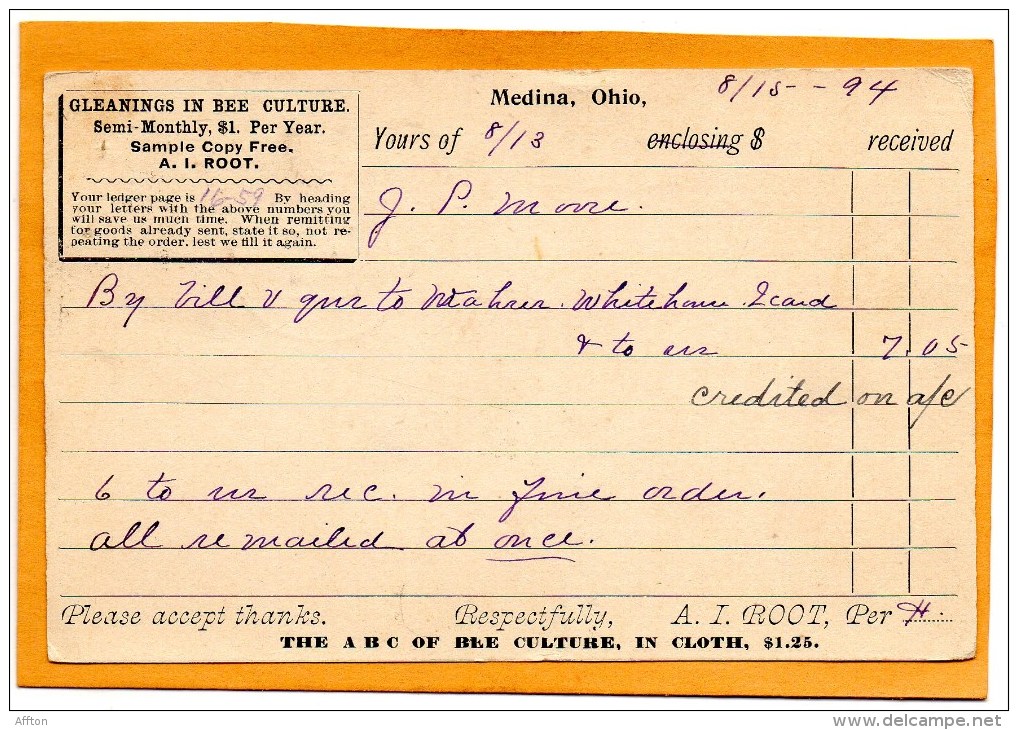 GLEANINGS IN BEE CULTURE.
Semi-Monthly, $1. Per Year.
Sample Copy Free.
A. I. ROOT.
Your ledger page is 16-59 By heading
your letters with the above numbers you
will save us much time. When remitting
for goods already sent, state it so, not re-
peating the order, lest we fill it again.
Medina, Ohio, 8/15--94
Yours of 8/13 enclosing $ received
J. P. Moore.
By Bill to Whitehouse
& to us 7.05
credited on a/c
6 to us rec. in fine order.
all remailed at once.
Please accept thanks. Respectfully, A. I. ROOT, Per H
THE A B C OF BEE CULTURE, IN CLOTH, $1.25.
Affton
delcampe.net